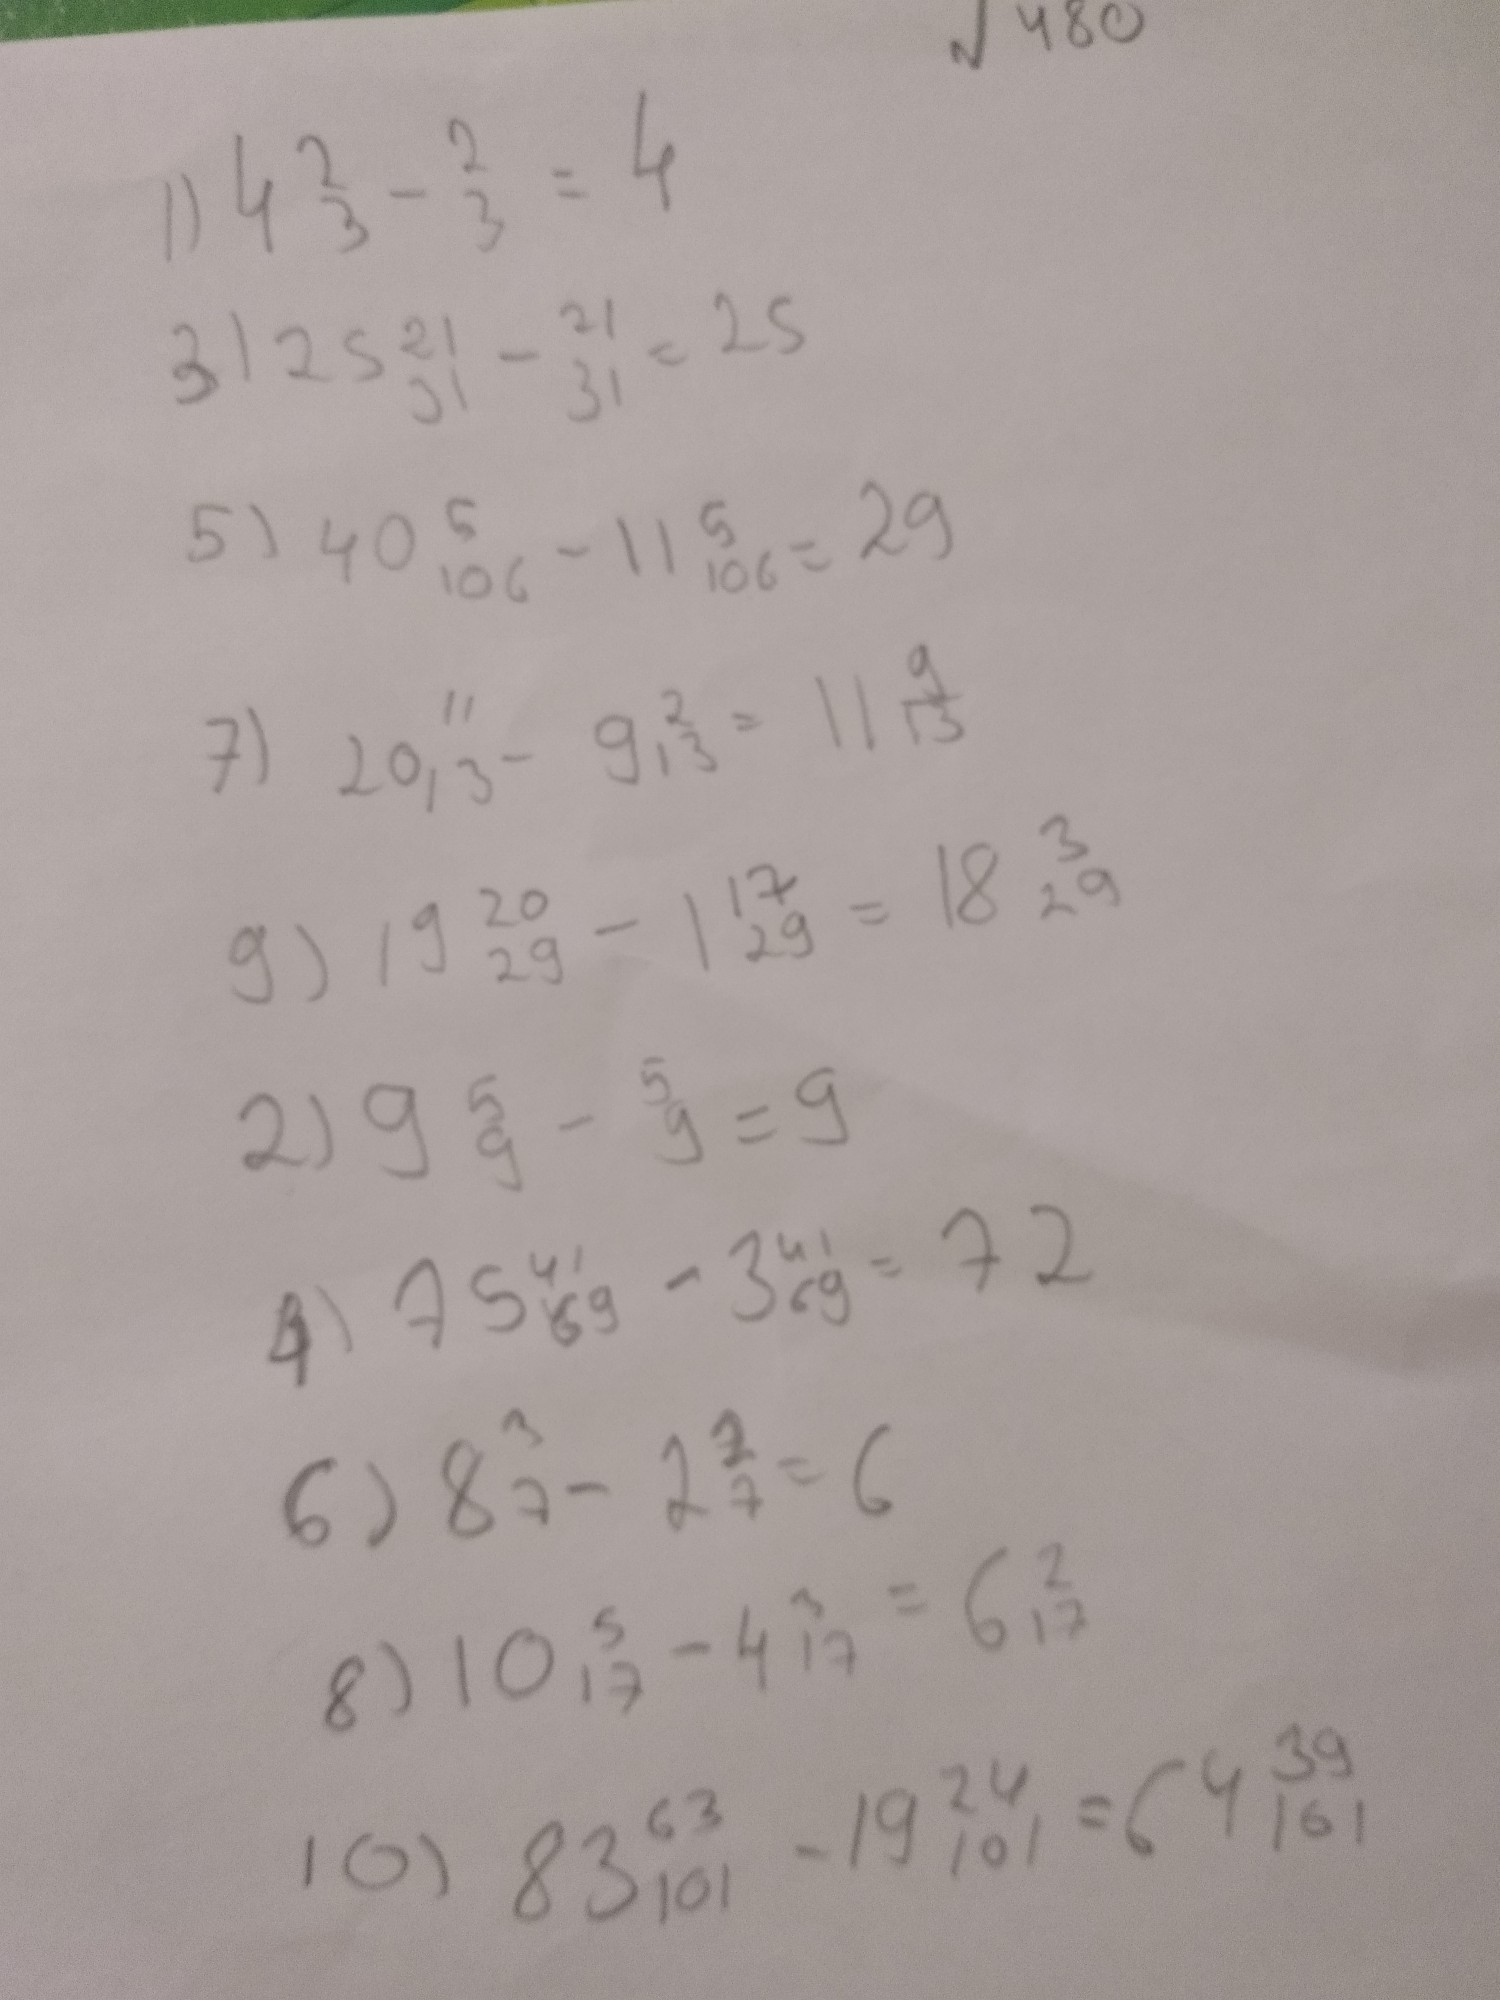 √480
1) 4 2/3 - 2/3 = 4
3) 25 21/31 - 21/31 = 25
5) 40 5/106 - 11 5/106 = 29
7) 20 11/13 - 9 2/13 = 11 9/13
9) 19 20/29 - 1 17/29 = 18 3/29
2) 9 5/9 - 5/9 = 9
4) 75 41/69 - 3 41/69 = 72
6) 8 3/7 - 2 /7 = 6
8) 10 5/17 - 4 3/17 = 6 2/17
10) 83 63/101 - 19 24/101 = 64 39/101